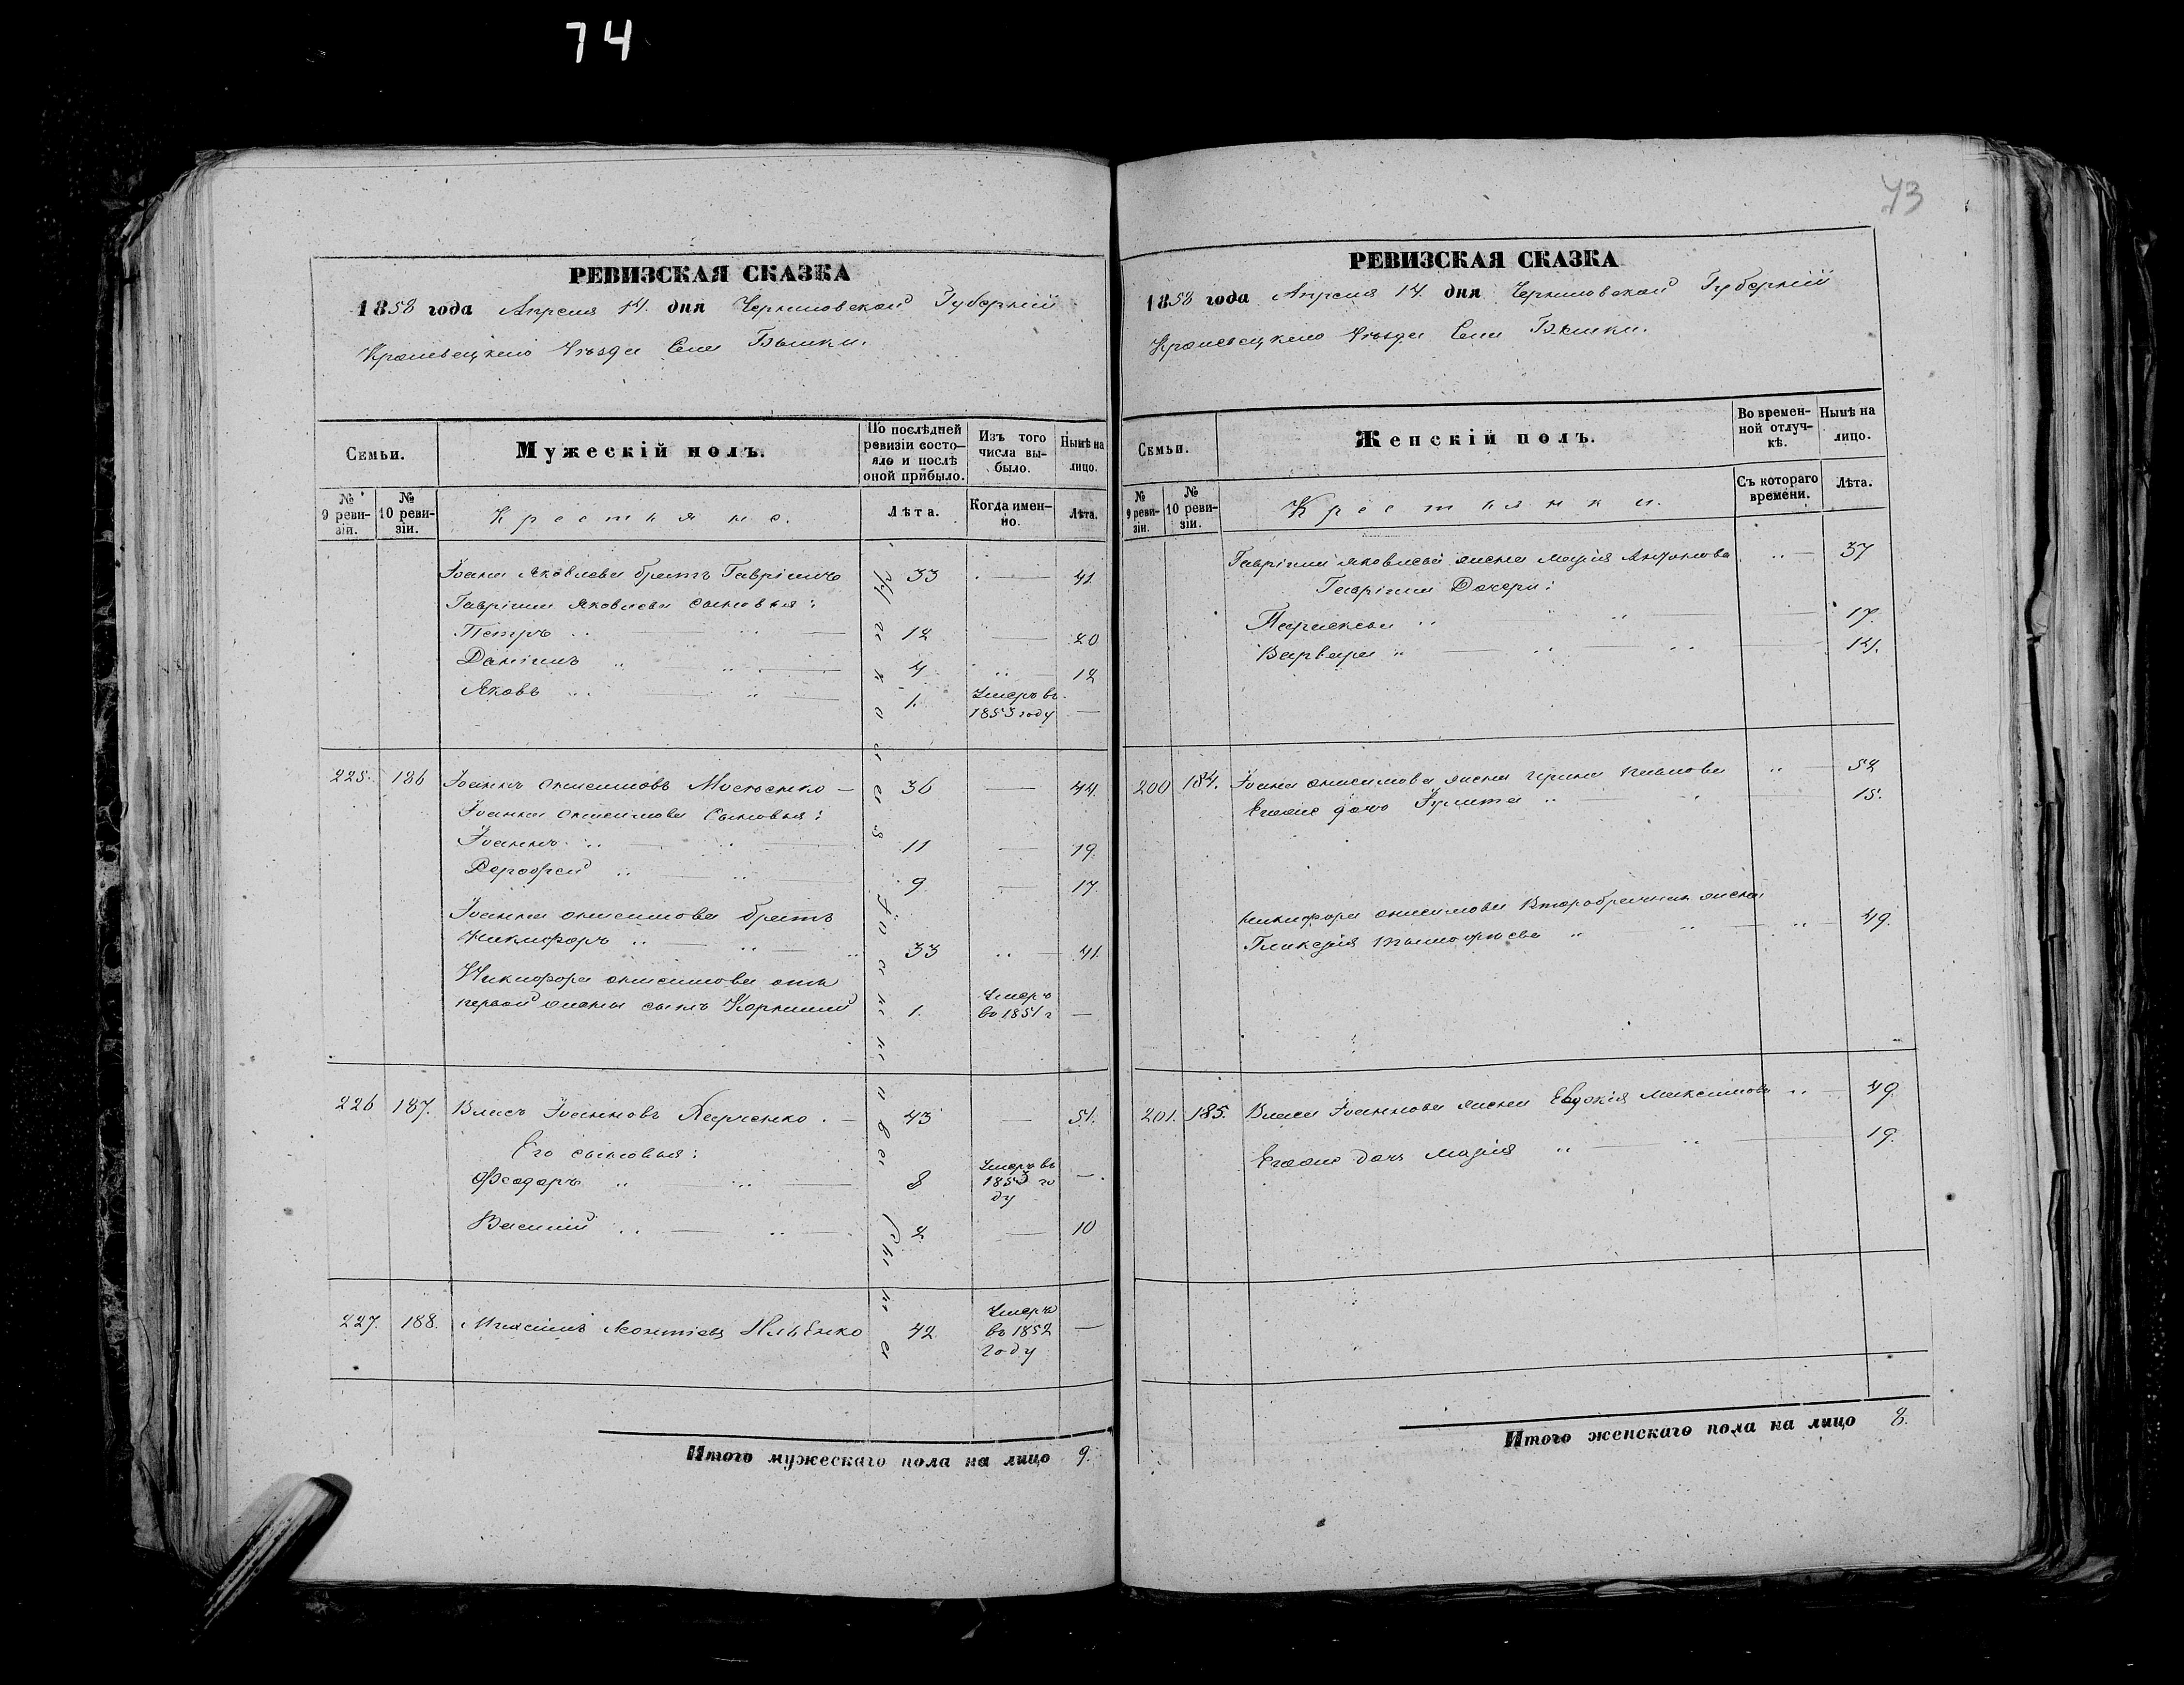 74
РЕВИЗСКАЯ СКАЗКА
1858 года Апреля 14. дня Черниговской Губерніи
Кролевецкаго Уезда Села Бѣлки.
Семьи.
№ 9 ревизіи.
№ 10 ревизіи.
Мужескій полъ.
Крестьяне.
По послѣдней ревизіи состояло и послѣ оной прибыло.
Лѣта.
Изъ того числа выбыло.
Когда именно.
Нынѣ на лицо.
Лѣта.
Іоана Яковлева братъ Гавріилъ 33 — 41
Гавріила Яковлева сыновья:
Петръ 12 — 20
Даніилъ 4 12
Яковъ 1. Умеръ въ 1853 году —
225. 186 Іоаннъ Онисимовъ — 36 — 44.
Іоанна Онисимова Сыновья:
Іоаннъ 11 — 19.
Дорофей 9. — 17.
Іоанна Онисимова братъ
Никифоръ 33 41.
Никифора Онисимова отъ
первой жены сынъ Корнилій 1. Умеръ въ 1851 г —
226 187. Власъ Іоанновъ Харченко. — 43 — 51.
Его сыновья:
Феодоръ 8 Умеръ въ 1853 году —
Василій 2. — 10
227. 188. Леонтіевъ Ильенко 42. Умеръ въ 1852 году —
Итого мужескаго пола на лицо 9.
73
РЕВИЗСКАЯ СКАЗКА
1858 года Апреля 14. дня Черниговской Губерніи
Кролевецкаго Уезда Села Бѣлки.
Семьи.
№ 9 ревизіи.
№ 10 ревизіи.
Женскій полъ.
Крестьянки.
Во временной отлучкѣ.
Съ котораго времени.
Нынѣ на лицо.
Лѣта.
Гавріила Яковлева жена Марія Антонова 37
Гавріила Дочери:
Параскева 17.
Варвара 14.
200 184. Іоана Онисимова жена Ирина 52
Егоже дочь Іулита 15.
Никифора Онисимова Второбрачная жена
Гликерія Тимофѣева 49.
201. 185. Власа Іоаннова жена Евдокія Максимова 49
Егоже дочь Марія 19.
Итого женскаго пола на лицо 8.